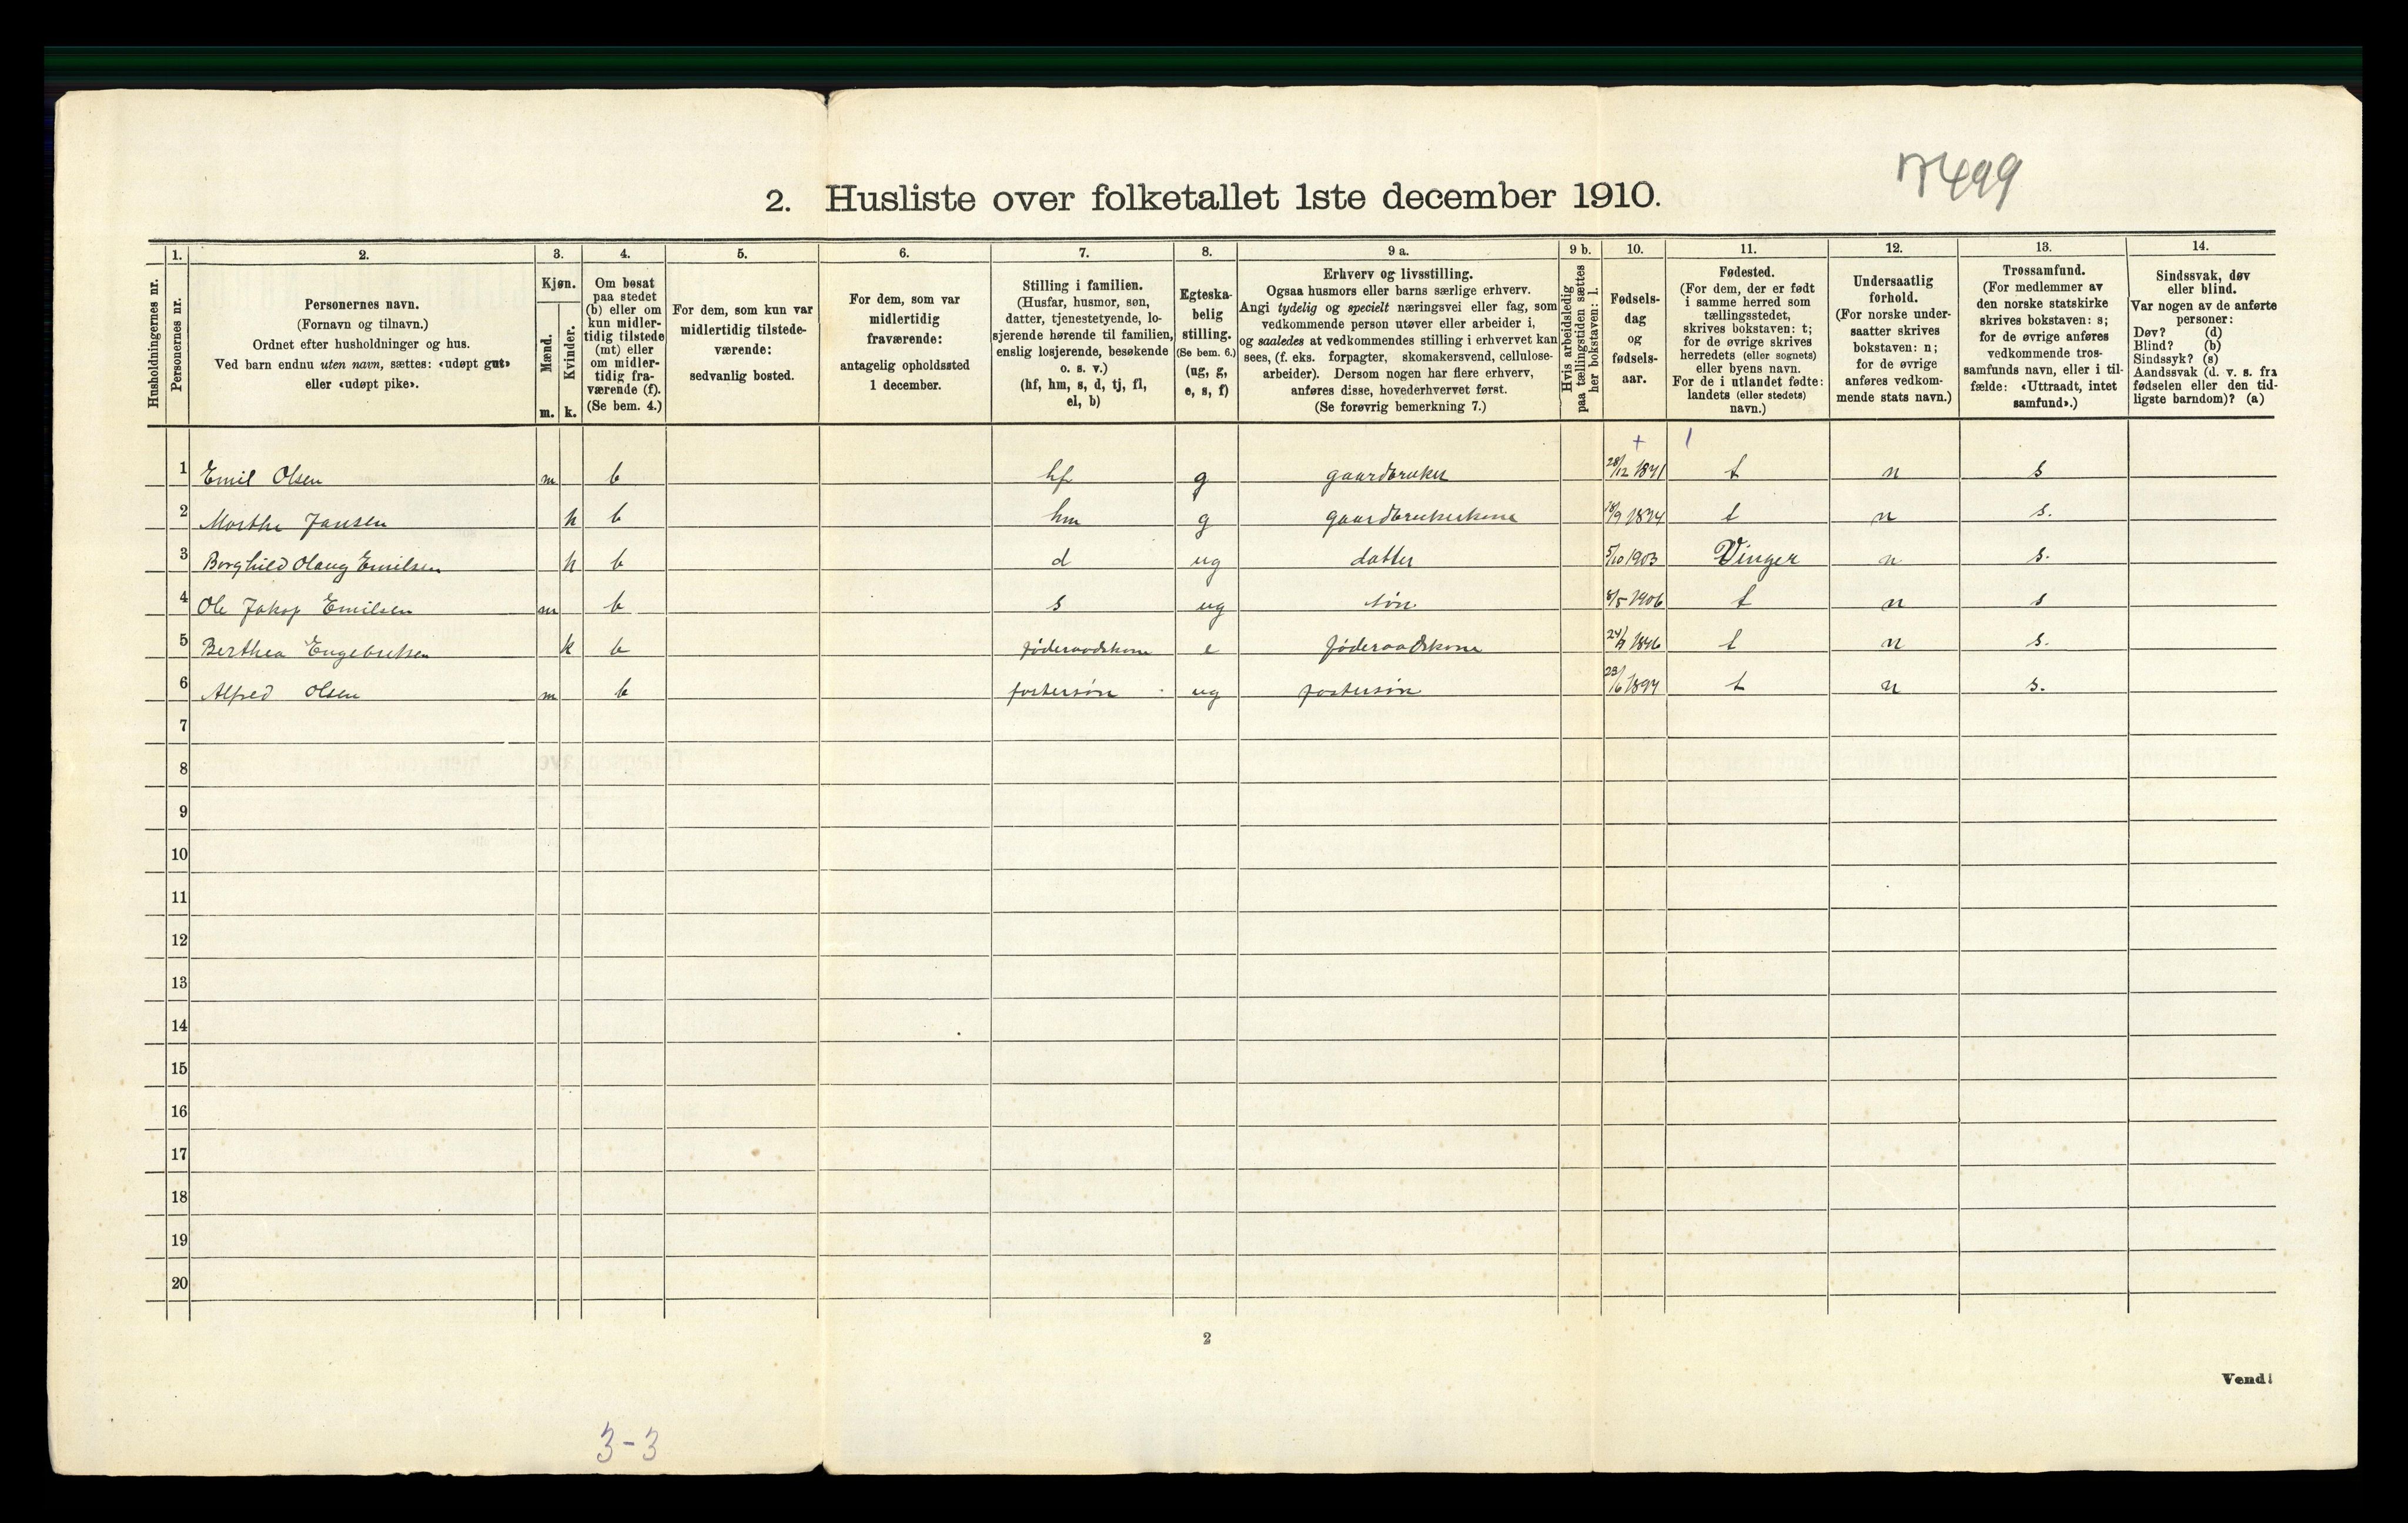 499
2. Husliste over folketallet 1ste december 1910.
Husholdningernes nr.
1.
Personernes nr.
2.
Personernes navn.
(Fornavn og tilnavn.)
Ordnet efter husholdninger og hus.
Ved barn endnu uten navn, sættes: «udøpt gut»
eller «udøpt pike».
3.
Kjøn.
Mænd.
m.
Kvinder.
k.
4.
Om bosat
paa stedet
(b) eller om
kun midler-
tidig tilstede
(mt) eller
om midler-
tidig fra-
værende (f).
(Se bem. 4.)
5.
For dem, som kun var
midlertidig tilstede-
værende:
sedvanlig bosted.
6.
For dem, som var
midlertidig
fraværende:
antagelig opholdssted
1 december.
7.
Stilling i familien.
(Husfar, husmor, søn,
datter, tjenestetyende, lo-
sjerende hørende til familien,
enslig losjerende, besøkende
o. s. v.)
(hf, hm, s, d, tj, fl,
el, b)
8.
Egteska-
belig
stilling.
(Se bem. 6.)
(ug, g,
e, s, f)
9 a.
Erhverv og livsstilling.
Ogsaa husmors eller barns særlige erhverv.
Angi tydelig og specielt næringsvei eller fag, som
vedkommende person utøver eller arbeider i,
og saaledes at vedkommendes stilling i erhvervet kan
sees, (f. eks. forpagter, skomakersvend, cellulose-
arbeider). Dersom nogen har flere erhverv,
anføres disse, hovederhvervet først.
(Se forøvrig bemerkning 7.)
9 b.
Hvis arbeidsledig
paa tællingstiden sættes
her bokstaven: l.
10.
Fødsels-
dag
og
fødsels-
aar.
11.
Fødested.
(For dem, der er født
i samme herred som
tællingsstedet,
skrives bokstaven: t;
for de øvrige skrives
herredets (eller sognets)
eller byens navn.
For de i utlandet fødte:
landets (eller stedets)
navn.)
12.
Undersaatlig
forhold.
(For norske under-
saatter skrives
bokstaven: n;
for de øvrige
anføres vedkom-
mende stats navn.)
13.
Trossamfund.
(For medlemmer av
den norske statskirke
skrives bokstaven: s;
for de øvrige anføres
vedkommende tros-
samfunds navn, eller i til-
fælde: «Uttraadt, intet
samfund».)
14.
Sindssvak, døv
eller blind.
Var nogen av de anførte
personer:
Døv? (d)
Blind? (b)
Sindssyk? (s)
Aandssvak (d. v. s. fra
fødselen eller den tid-
ligste barndom)? (a)
1 Emil Olsen m b hf g gaardbruker 28/12 1871 t n s
2 Marthe Jansen k b hm g gaardbrukerkone 18/9 1874 t n s.
3 Borghild Olaug Emilsen k b d ug datter 5/10 1903 Vinger n s.
4 Ole Jakop Emilsen m b s ug søn 8/5 1906 t n s
5 Berthea Engebretsen k b føderaadskone e føderaadskone 1846 t n s.
6 Alfred Olsen m b fostersøn ug fostersøn 23/6 1897 t n s.
7
8
9
10
11
12
13
14
15
16
17
18
19
20
2
Vend!
3-3